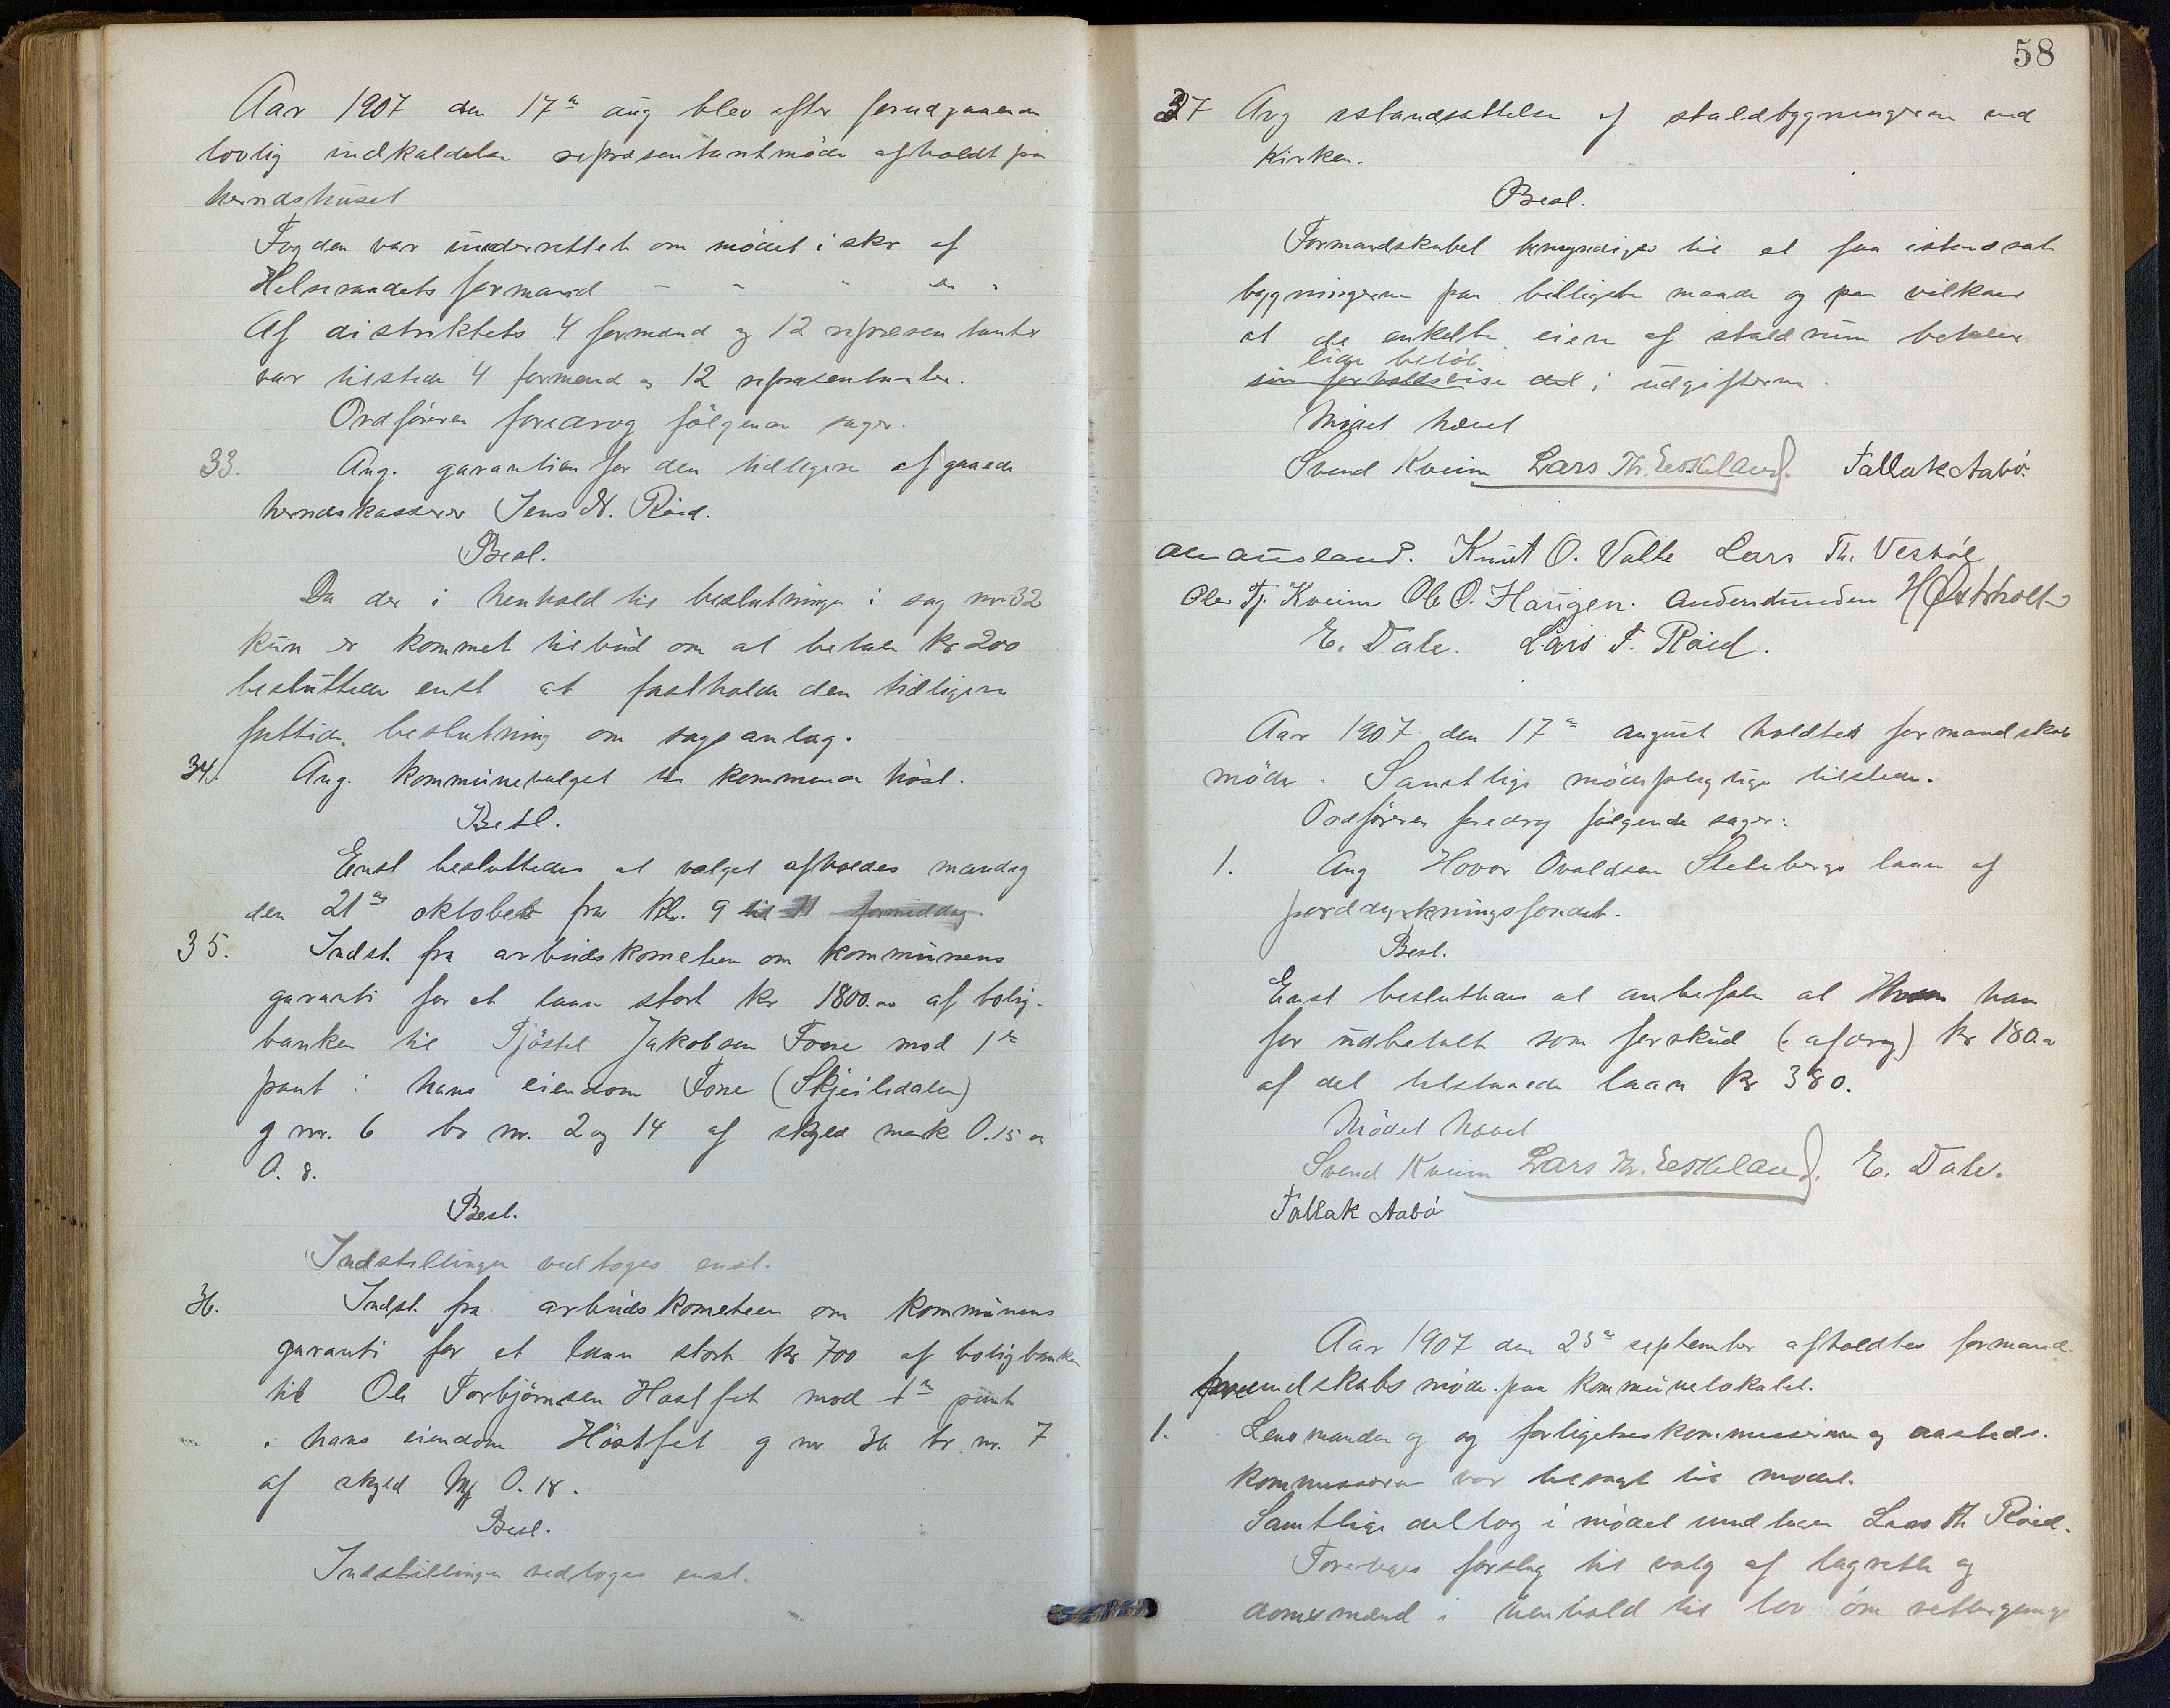 Aar 1907 den 17de aug blev efter forudgaaende
lovlig indkaldelse repræsentantmöde afholdt paa
herredshuset
Fogden var underrettet om mödet i skr af
Helseraadets formand - - - "
Af distriktets 4 formænd og 12 repræsentanter
var tilstede 4 formænd og 12 repræsentanter.
Ordföreren foredrog fölgende sager.
33. Ang. garantien for den tidligere afgaaede
herredskasserer Jens N. Röid.
Besl.
Da der i henhold til beslutningen i sag nr 32
kun er kommet tilbud om at betale kr 200
besluttedes enst at fastholde den tidligere
fattede beslutning om sagsanlæg.
34. Ang. kommunevalget til kommende höst.
Besl.
Enst besluttedes at valget afholdes mandag
den 21de oktober fra kl. 9 til 11 formiddag
35. Indst. fra arbeidskometeen om kommunens
garanti for et laan stort kr 1800.00 af bolig-
banken til Tjöstel Jakobsen Fone mod 1ste
pant i hans eiendom Fone (Skjeilsdalen)
g nr. 6 br nr. 2 og 14 af skyld mark 0.15 og
0.8.
Besl.
Indstillingen vedtoges enst.
36. Indst. fra arbeidskometeen om kommunens
garanti for et laan stort kr 700 af boligbanken
til Ole Torbjörnsen Höstfet mod 1ste pant
i hans eiendom Höstfet g nr 36 br. nr. 7
af skyld M 0.18.
Besl.
Indstillingen vedtoges enst.
58
37 Ang istandsættelse af staldbygningerne ved
Kirken.
Besl.
Formandskabet bemyndiges til at faa istandsat
bygningerne paa billigste maade og paa vilkaar
at de enkelte eiere af staldrum betaler
lige belöb
sin forholdsvise del i udgifterne.
Mödet hævet
Svend Kveim Lars Th. Eeskeland. Tallak Aabö.
Knut O. Valle Lars Th. Vesböl
Ole Tj. Kveim Ole O. Haugen. Anders Lunden H Østerholt
E. Dale. Lars T. Röid.
Aar 1907 den 17de august holdtes formandskabs
möde. Samtlige mödepligtige tilstede.
Ordföreren foredrog fölgende sager:
1. Ang Hovor Ovaldsen Sletebergs laan af
jorddyrkningsfondet.
Besl.
Enst besluttedes at anbefale at han
faar udbetalt som forskud (: afdrag) kr 180.00
af det tilstaaede laan kr 380.
Mödet hævet
Svend Kveim Lars Th. Eeskeland. E. Dale.
Tallak Aabö
Aar 1907 den 23de september afholdtes formand-
skabsmöde paa kommunelokalet.
1. Lensmanden og og forligelseskommisserne og aasteds-
kommissærer var tilsagt til mödet.
Samtlige deltog i mödet undtagen Lars Th Röid.
Foretoges forslag til valg af lagrette og
domsmænd i henhold til lov om rettergang